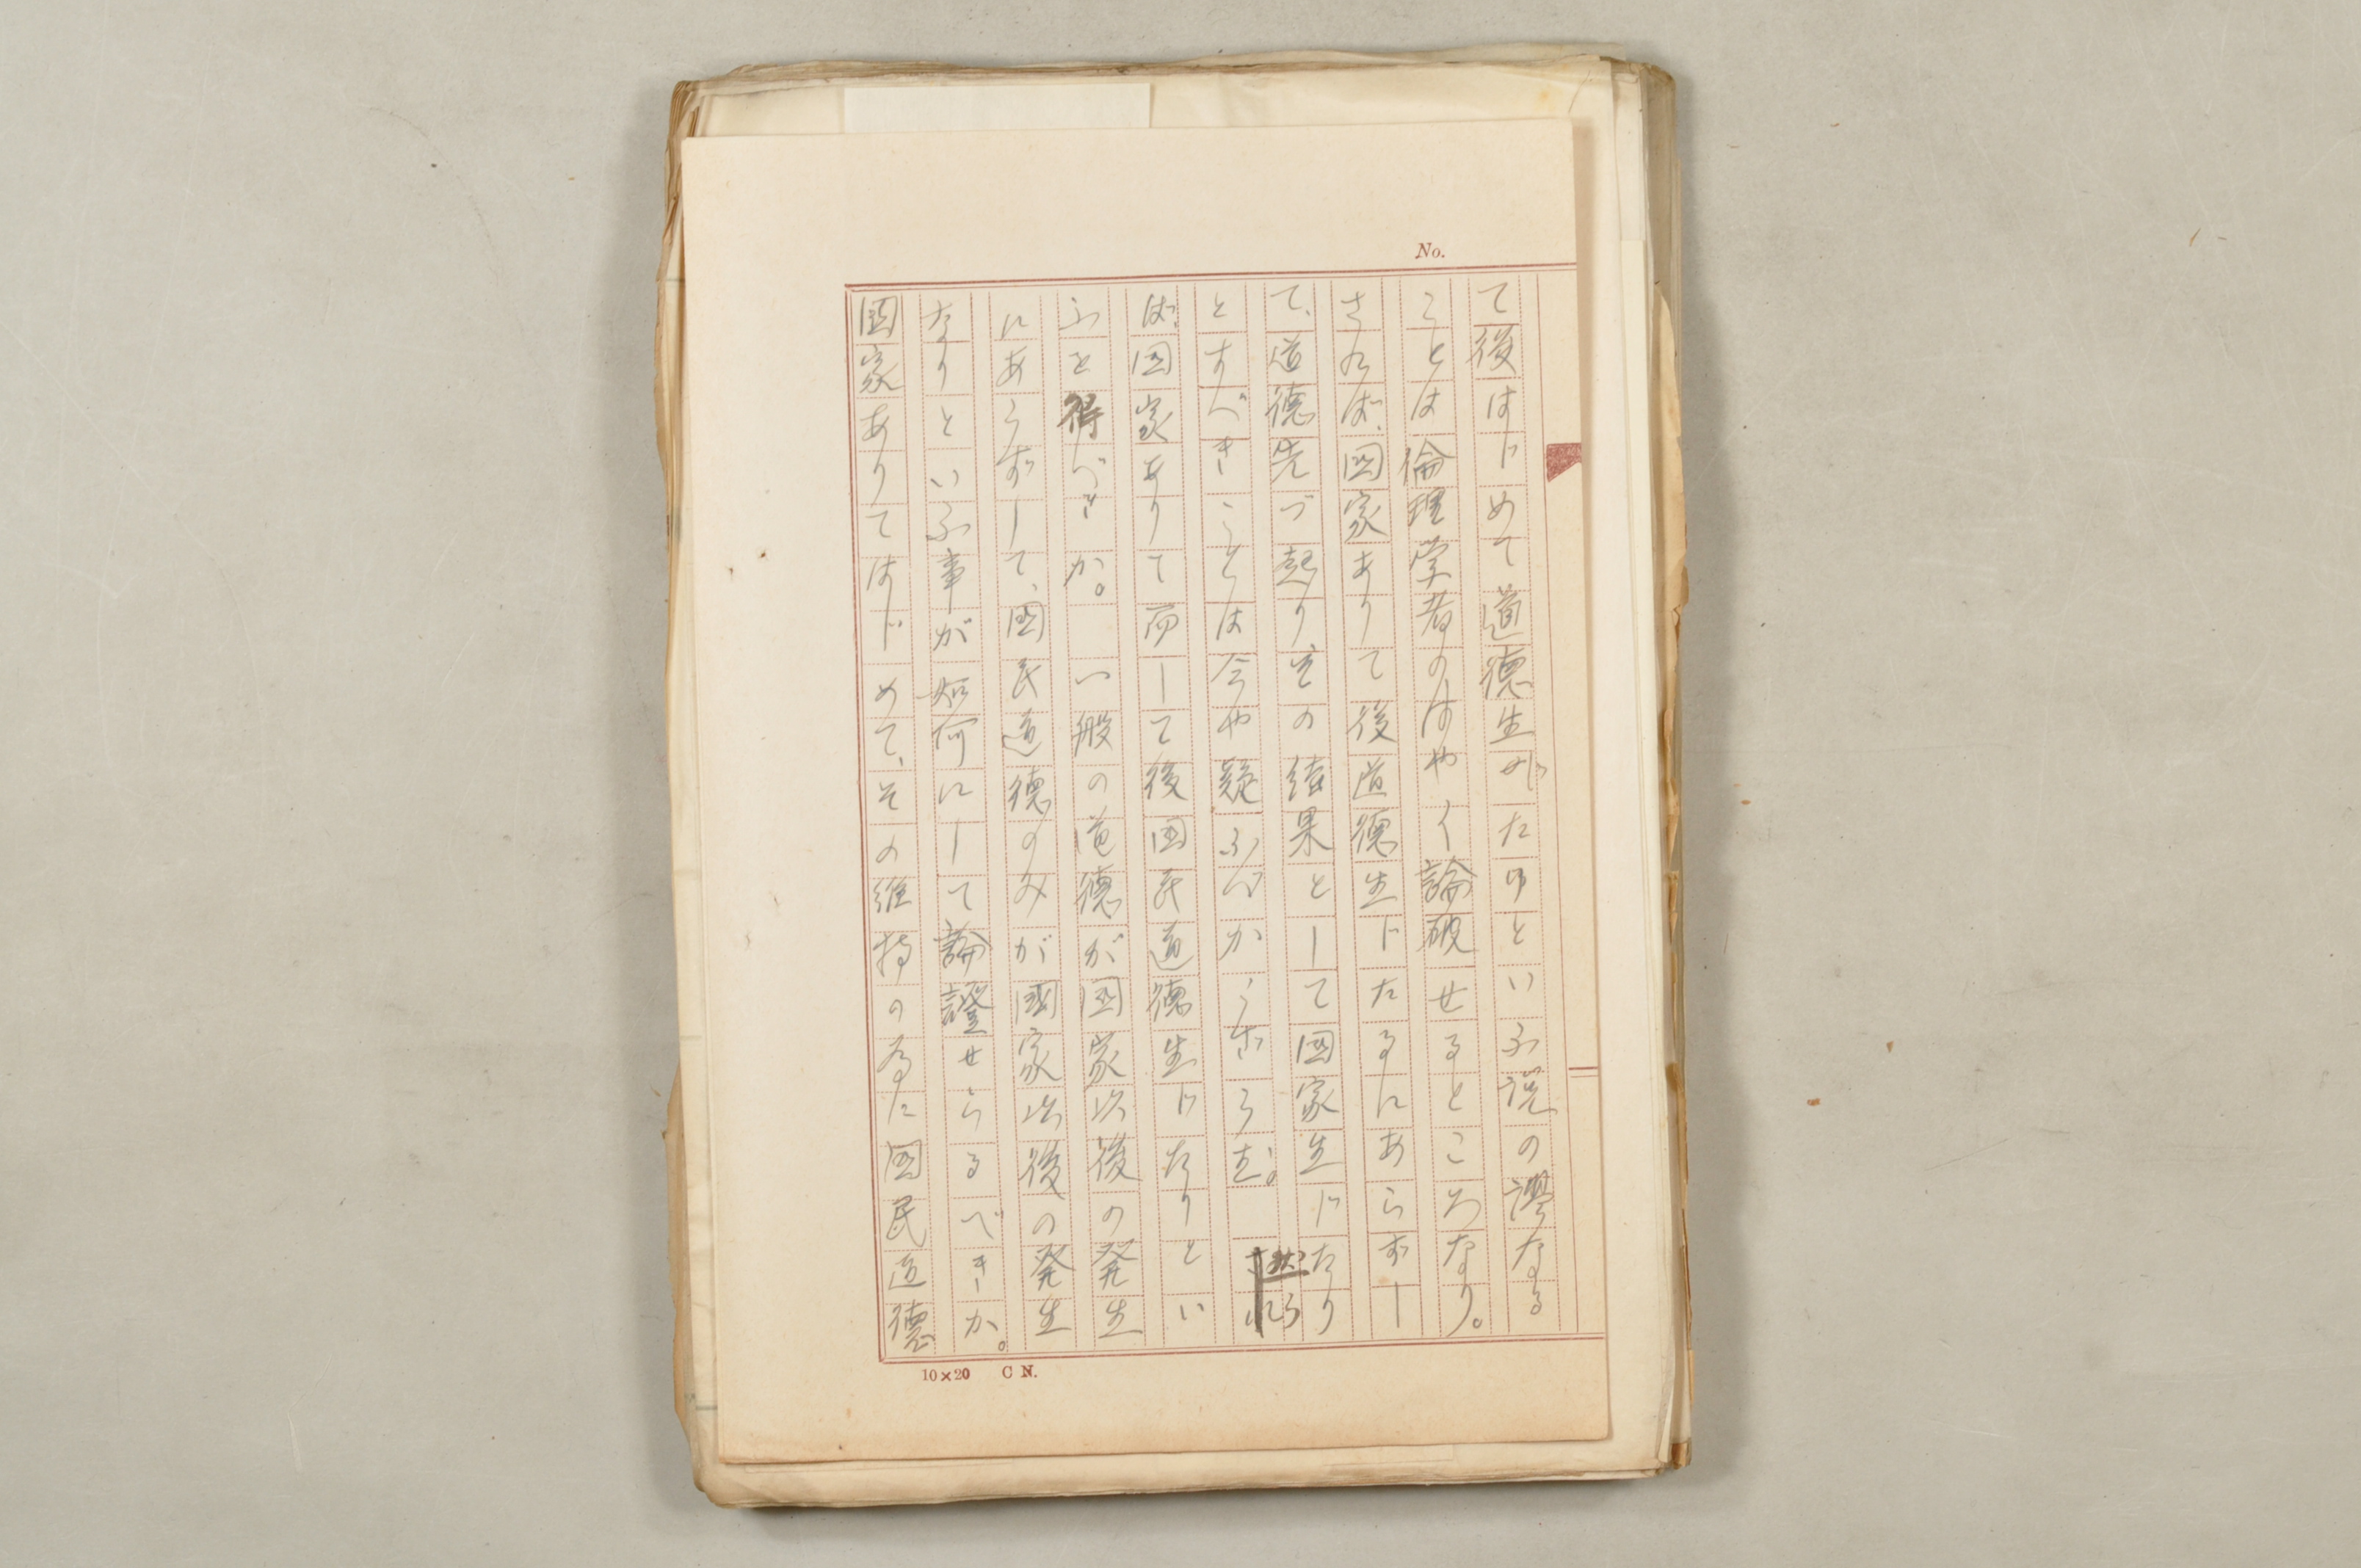 No.
て後はじめて道徳生れたりといふ説の謬なる
ことは倫理学者のはやく論破せるところなり。
されば、国家ありて後道徳生じたるにあらずし
て、道徳先づ起り、その結果として国家生じたり
とすべきことは今や疑ふべからざらむ。 然ら
ば、国家ありて而して後国民道徳生じたりとい
ふを得べきか。 一般の道徳が国家以後の発生
にあらずして、国民道徳のみが國家以後の発生
なりといふ事が如何にして論證せらるべきか。
国家ありてはじめて、その維持の為に国民道徳
10×20 C N.